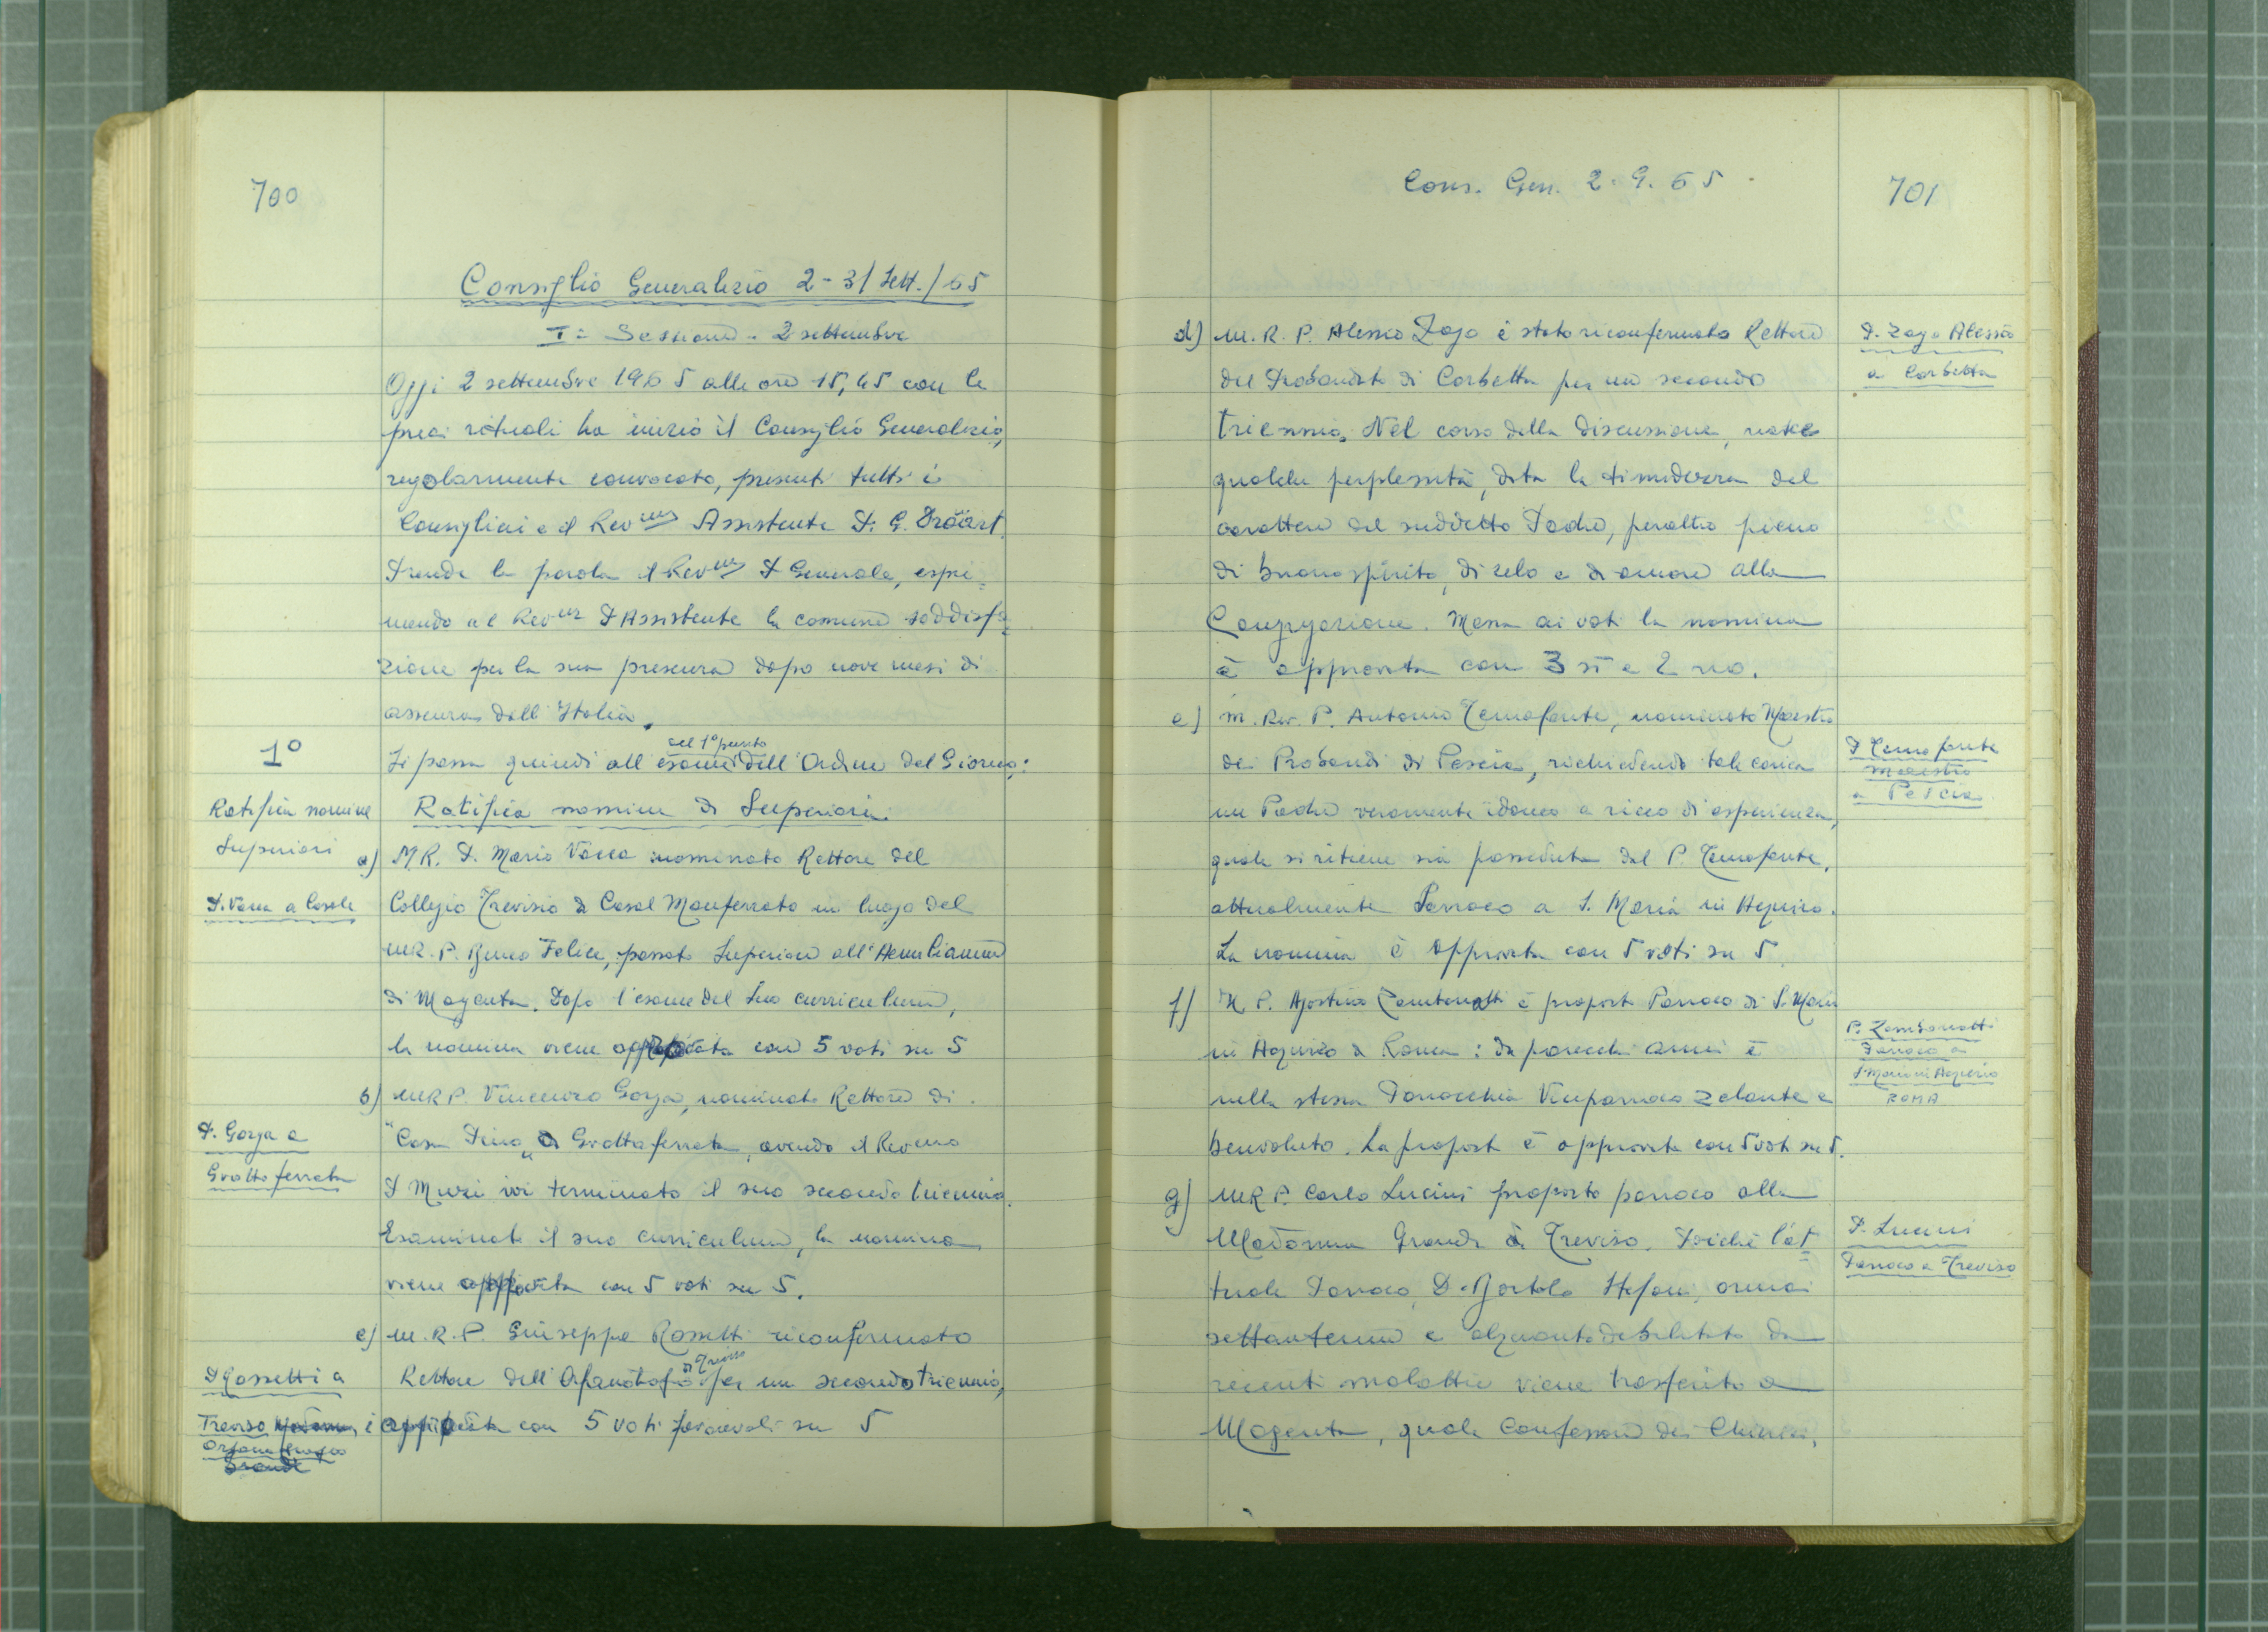 700
Consiglio Generalizio 2-3/Sett./65
I= Sessione - 2 settembre
Oggi 2 settembre 1965 alle ore 15,45 con le
preci rituali ha inizio il Consiglio Generalizio,
regolarmente convocato, presenti tutti i
Consiglieri e il Rev.mo Assistente P. G.
Prende la parola il Rev.mo P Generale, espri=
mendo al Rev.mo P Assistente la comune soddisfa=
zione per la sua presenza dopo nove mesi di
assenza dall'Italia.
1°
Si passa quindi all'esame del 1° punto dell'Ordine del Giorno:
Ratifica nomine
Superiori
Ratifica nomine di Superiori.
a) M.R. P. Mario Vacca nominato Rettore del
P. Vacca a Casale
Collegio Trevisio di Casal Monferrato in luogo del
M.R. P. Felice, passato Superiore all'Aemilianum
di Magenta. Dopo l'esame del suo curriculum,
la nomina viene approvata con 5 voti su 5
b) M.R P. Vincenzo Gorga, nominato Rettore di
P. Gorga a
Grottaferrata
"Casa Pino" di Grottaferrata, avendo il Rev.mo
P Muzi ivi terminato il suo secondo triennio.
Esaminato il suo curriculum, la nomina
viene approvata con 5 voti su 5.
c) M.R.P. Giuseppe Rossetti riconfermato
P Rossetti a
Treviso
Orfanotrofio
Rettore dell'Orfanotrofio di Treviso per un secondo triennio,
è approvata con 5 voti favorevoli su 5
Cons. Gen. 2.9.65.
701
d) M.R.P. Alessio Zago è stato riconfermato Rettore
P. Zago Alessio
a Corbetta
del Probandato di Corbetta per un secondo
triennio. Nel corso della discussione, nasce
qualche perplessità, data la timidezza del
carattere del suddetto Padre, peraltro pieno
di buono spirito, di zelo e di amore alla
Congregazione. Messa ai voti la nomina
è approvata con 3 sì e 2 no.
e) M. Rev. P. Antonio Temofonte, nominato Maestro
P Temofonte
maestro
a Pescia
dei Probandi di Pescia, richiedendo tale carica
un Padre veramente idoneo e ricco di esperienza,
quale si ritiene sia posseduta dal P. Temofonte,
attualmente Parroco a S. Maria in Aquiro.
La nomina è approvata con 5 voti su 5.
f) M. P. Agostino Zambonatti è proposto Parroco di S. Maria
P. Zambonatti
Parroco a
S Maria in Aquiro
ROMA
in Aquiro di Roma: da parecchi anni è
nella stessa Parrocchia Viceparroco zelante e
benvoluto. La proposta è approvata con 5 voti su 5.
g) M.R P. Carlo Lucini proposto parroco alla
P. Lucini
Parroco a Treviso
Madonna Grande di Treviso. Poiché l'at=
tuale Parroco, D. Bortolo Stefani, ormai
settantenne e alquanto debilitato da
recenti malattie viene trasferito a
Magenta, quale Confessore dei Chierici,